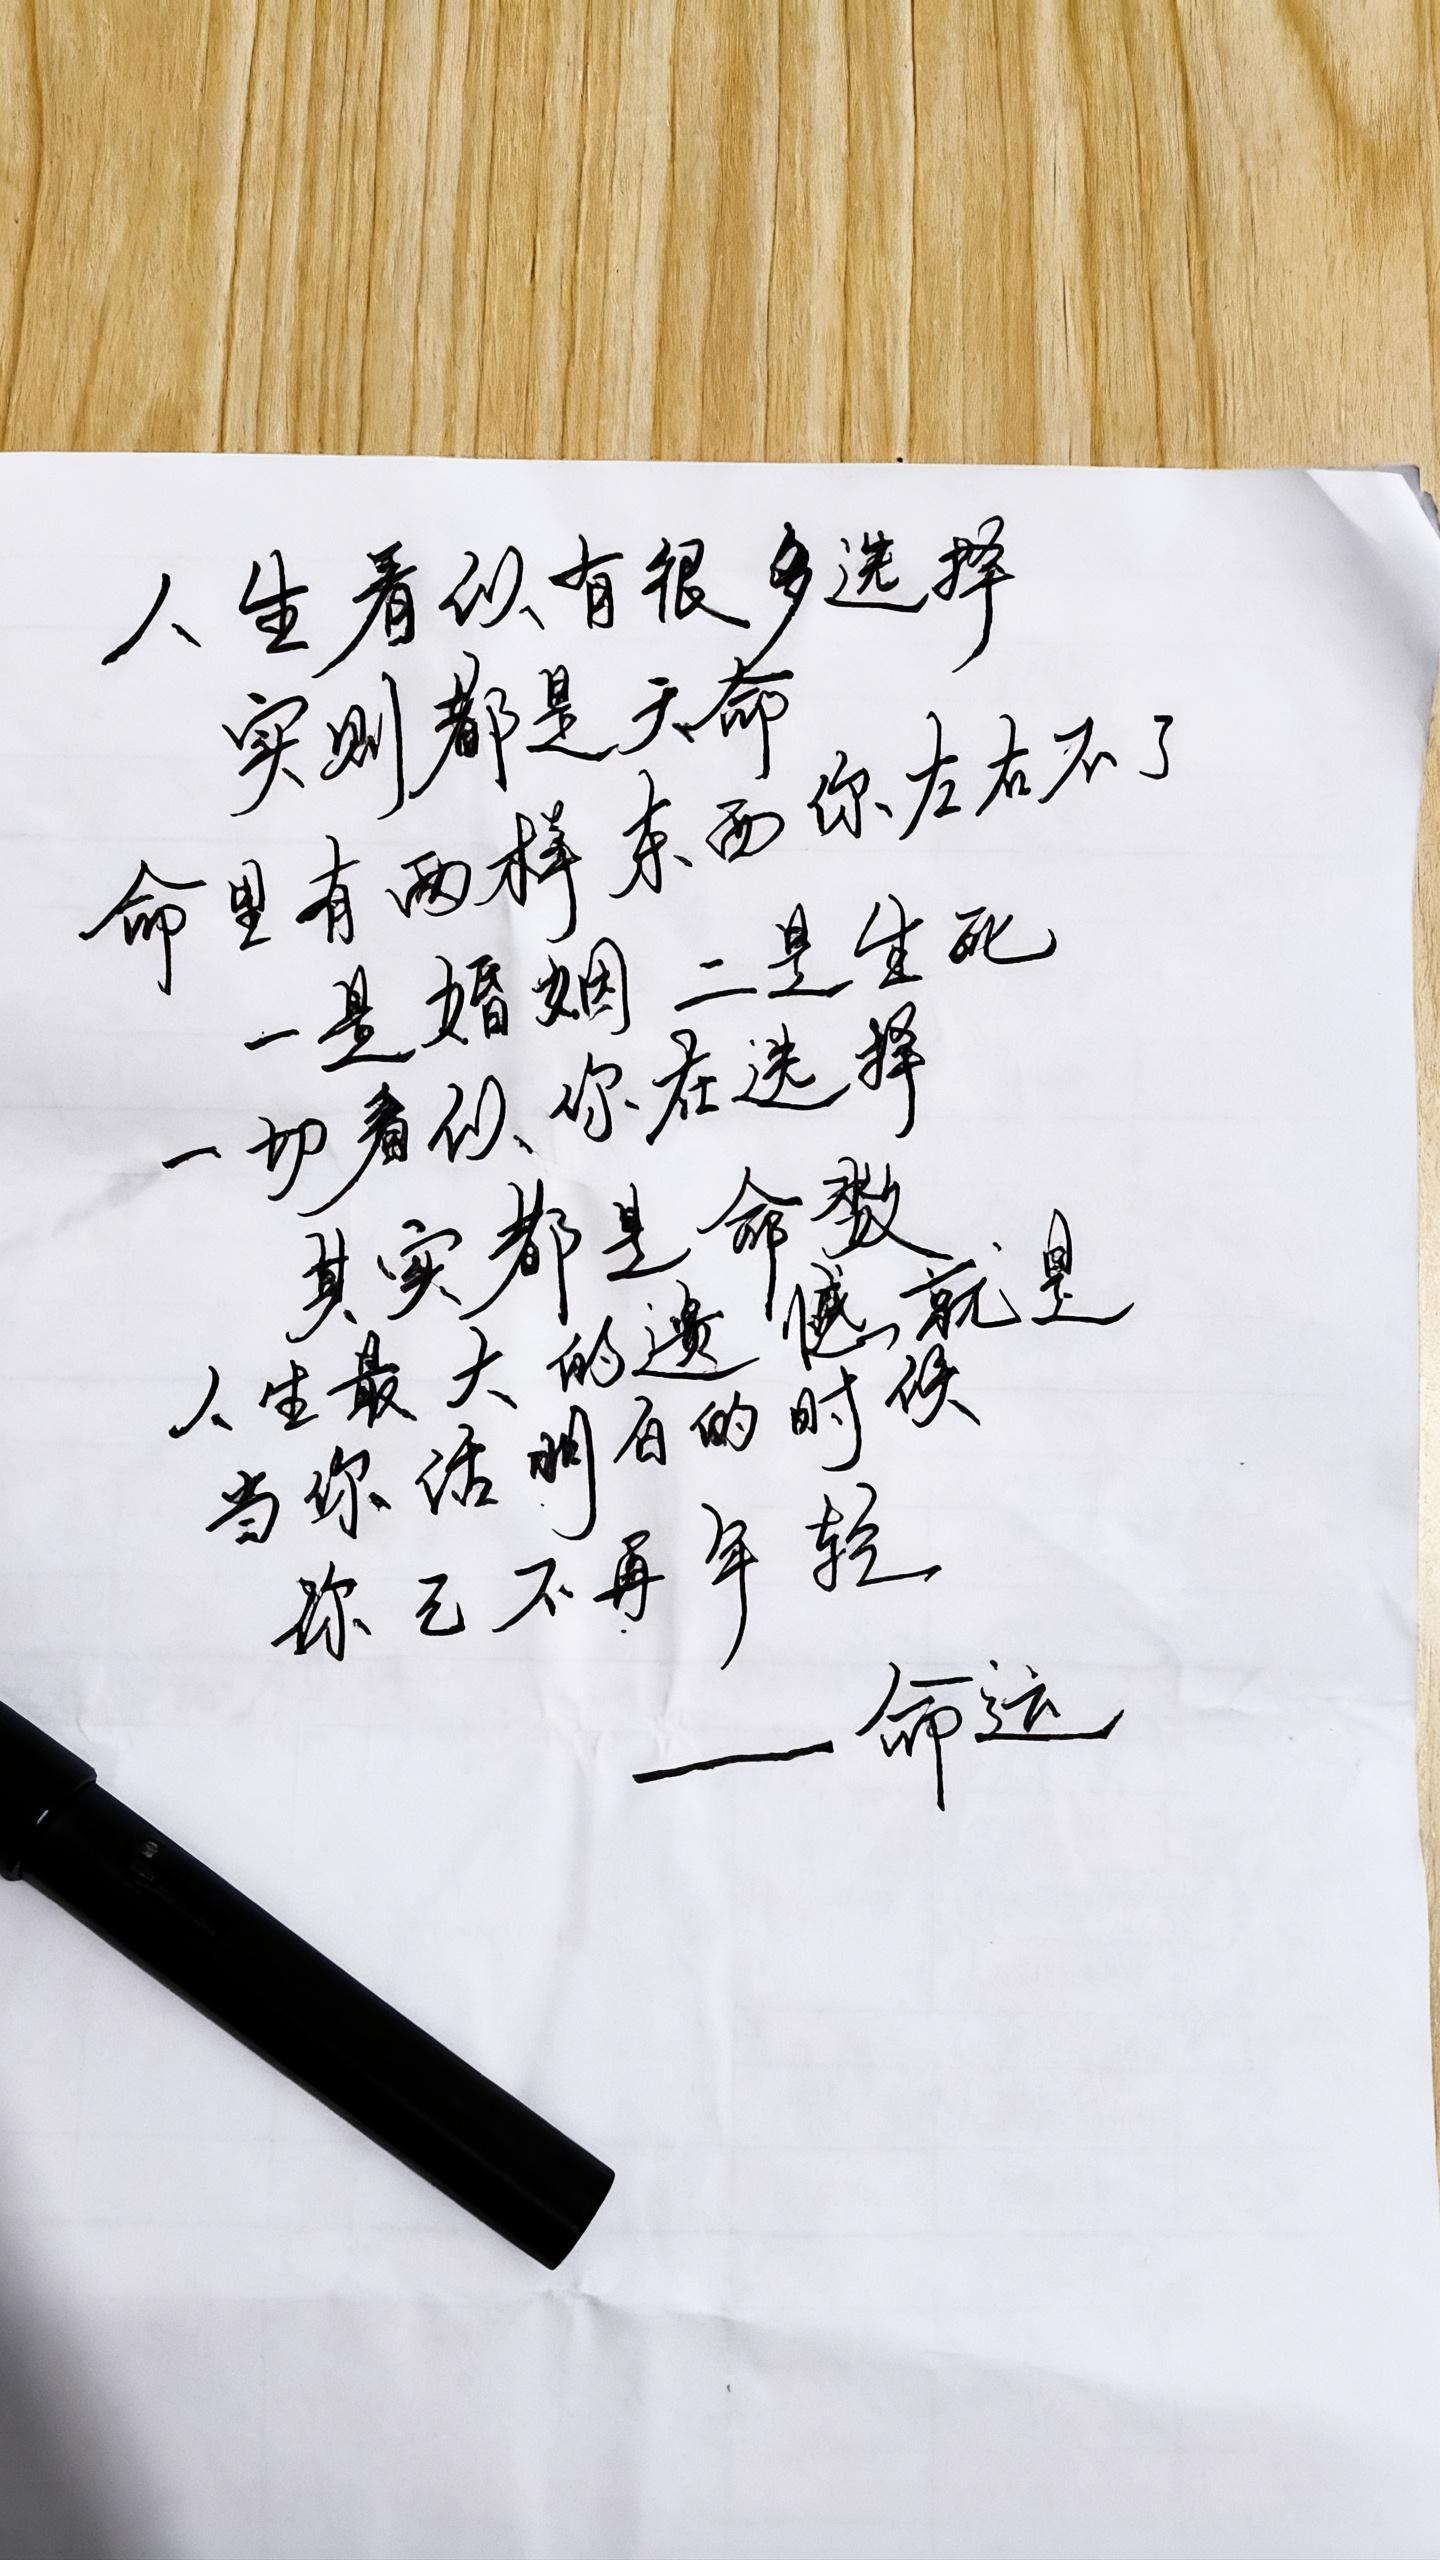 人生看似有很多选择
实则都是天命
命里有两样东西你左右不了
一是婚姻 二是生死
一切看似你在选择
其实都是命数
人生最大的遗憾就是
当你活明白的时候
你已不再年轻
——命运